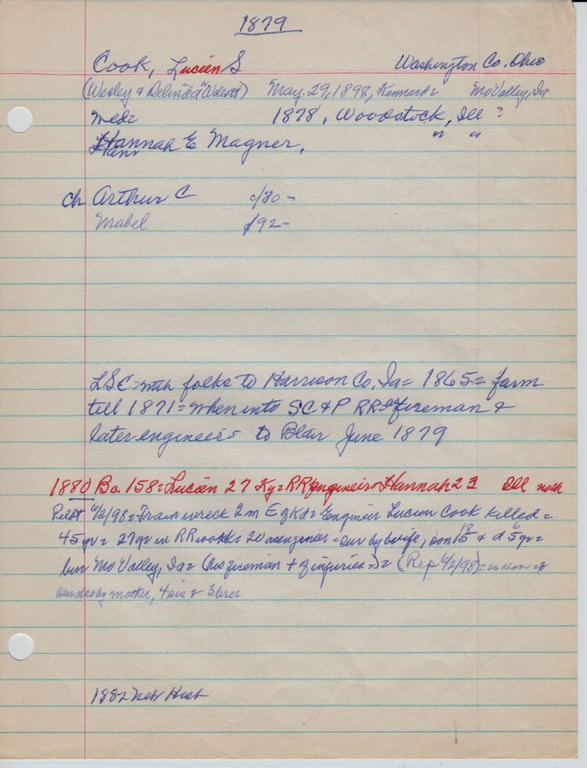 1879
Cook, Lucien S Washington Co. Ohio
(Wesley & Delinda May 29, 1898, Kennard= Mo Valley, Ia
med= 1878, Woodstock, Ill ?
Hannah E Magner, " "
Hann
ch Arthur C c/80-
Mabel c/92-
LSC=with folks to Harrison Co, Ia= 1865= farm
till 1871= when into SC&P RR= fireman &
later engineer= to Blair June 1879
1880 Ba. 158= Lucien 27 Ky= RR engineer= Hannah 21 Ill
Pilot 6/2/98= Train wreck 2 m E of Kd= Engineer Lucien Cook killed=
45 yr= 27 yr in RR work= 20 as engineer= sur by wife, son 18 & d 5 yr=
bur Mo Valley, Ia= (his fireman + of injuries)= (Rep 6/2/98)
mother, 4 sis & 3 bros
1882 Neb Hist